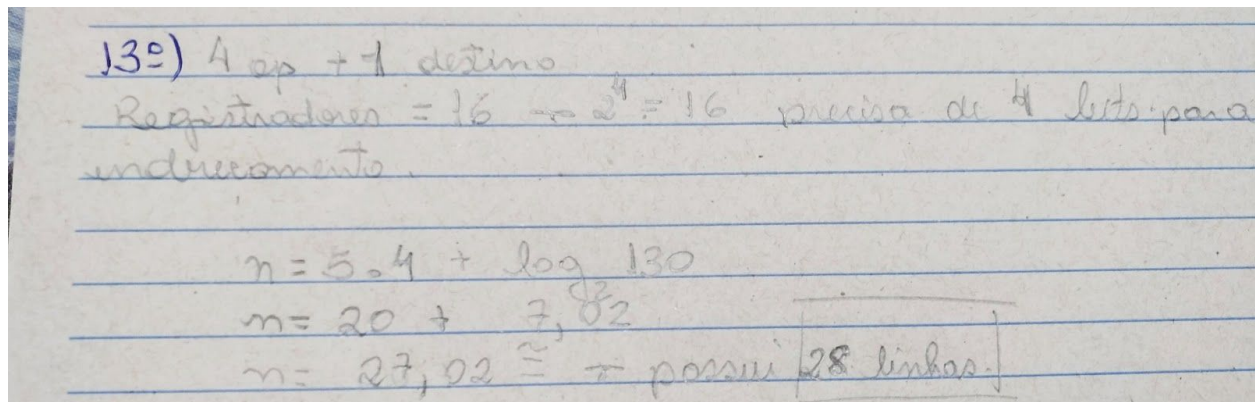 13º) 4 op + 1 destino
Registradores = 16 → 2⁴ = 16 precisa de 4 bits para
endereçamento.
n = 5.4 + log₂ 130
n = 20 + 7,02
n = 27,02 ≅ → possui 28 linhas.